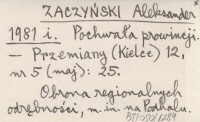 ZACZYŃSKI Aleksander
1981 i. Pochwała prowincji.
— Przemiany (Kielce) 12,
nr 5 (maj): 25.
Obrona regionalnych
odrębności, m.in. na Podhalu.
BT/050/1289